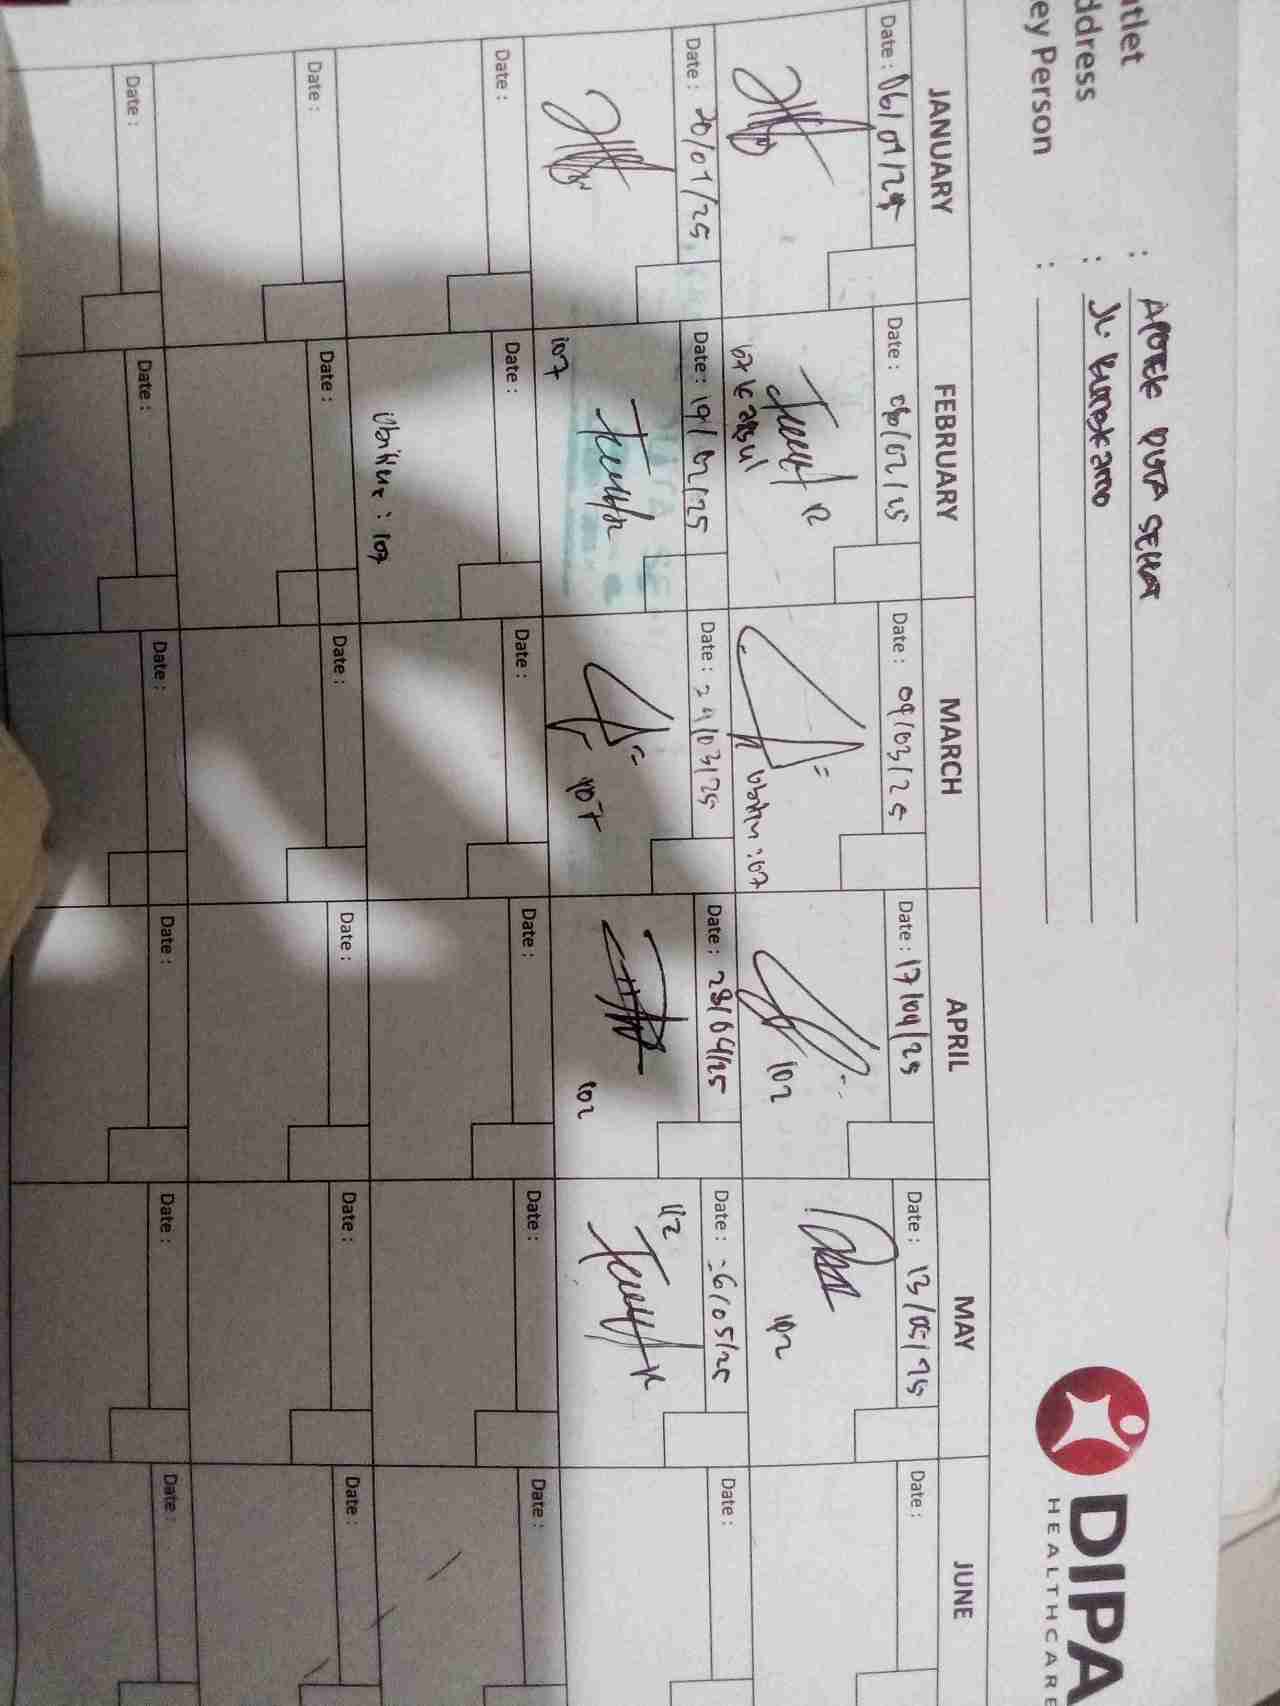 utlet : APOTEK DUTA SEHAT
ddress :
ey Person :
DIPA
HEALTHCARE
JANUARY FEBRUARY MARCH APRIL MAY JUNE
Date : 06/01/25 Date : 06/02/25 Date : 09/03/25 Date : 17/04/25 Date : 13/05/25 Date :
107 102 102
Date : 20/01/25 Date : 19/02/25 Date : 24/03/25 Date : 28/04/25 Date : 26/05/25 Date :
107 107 102 112
Date : Date : Date : Date : Date : Date :
: 107
Date : Date : Date : Date : Date : Date :
Date : Date : Date : Date : Date : Date :